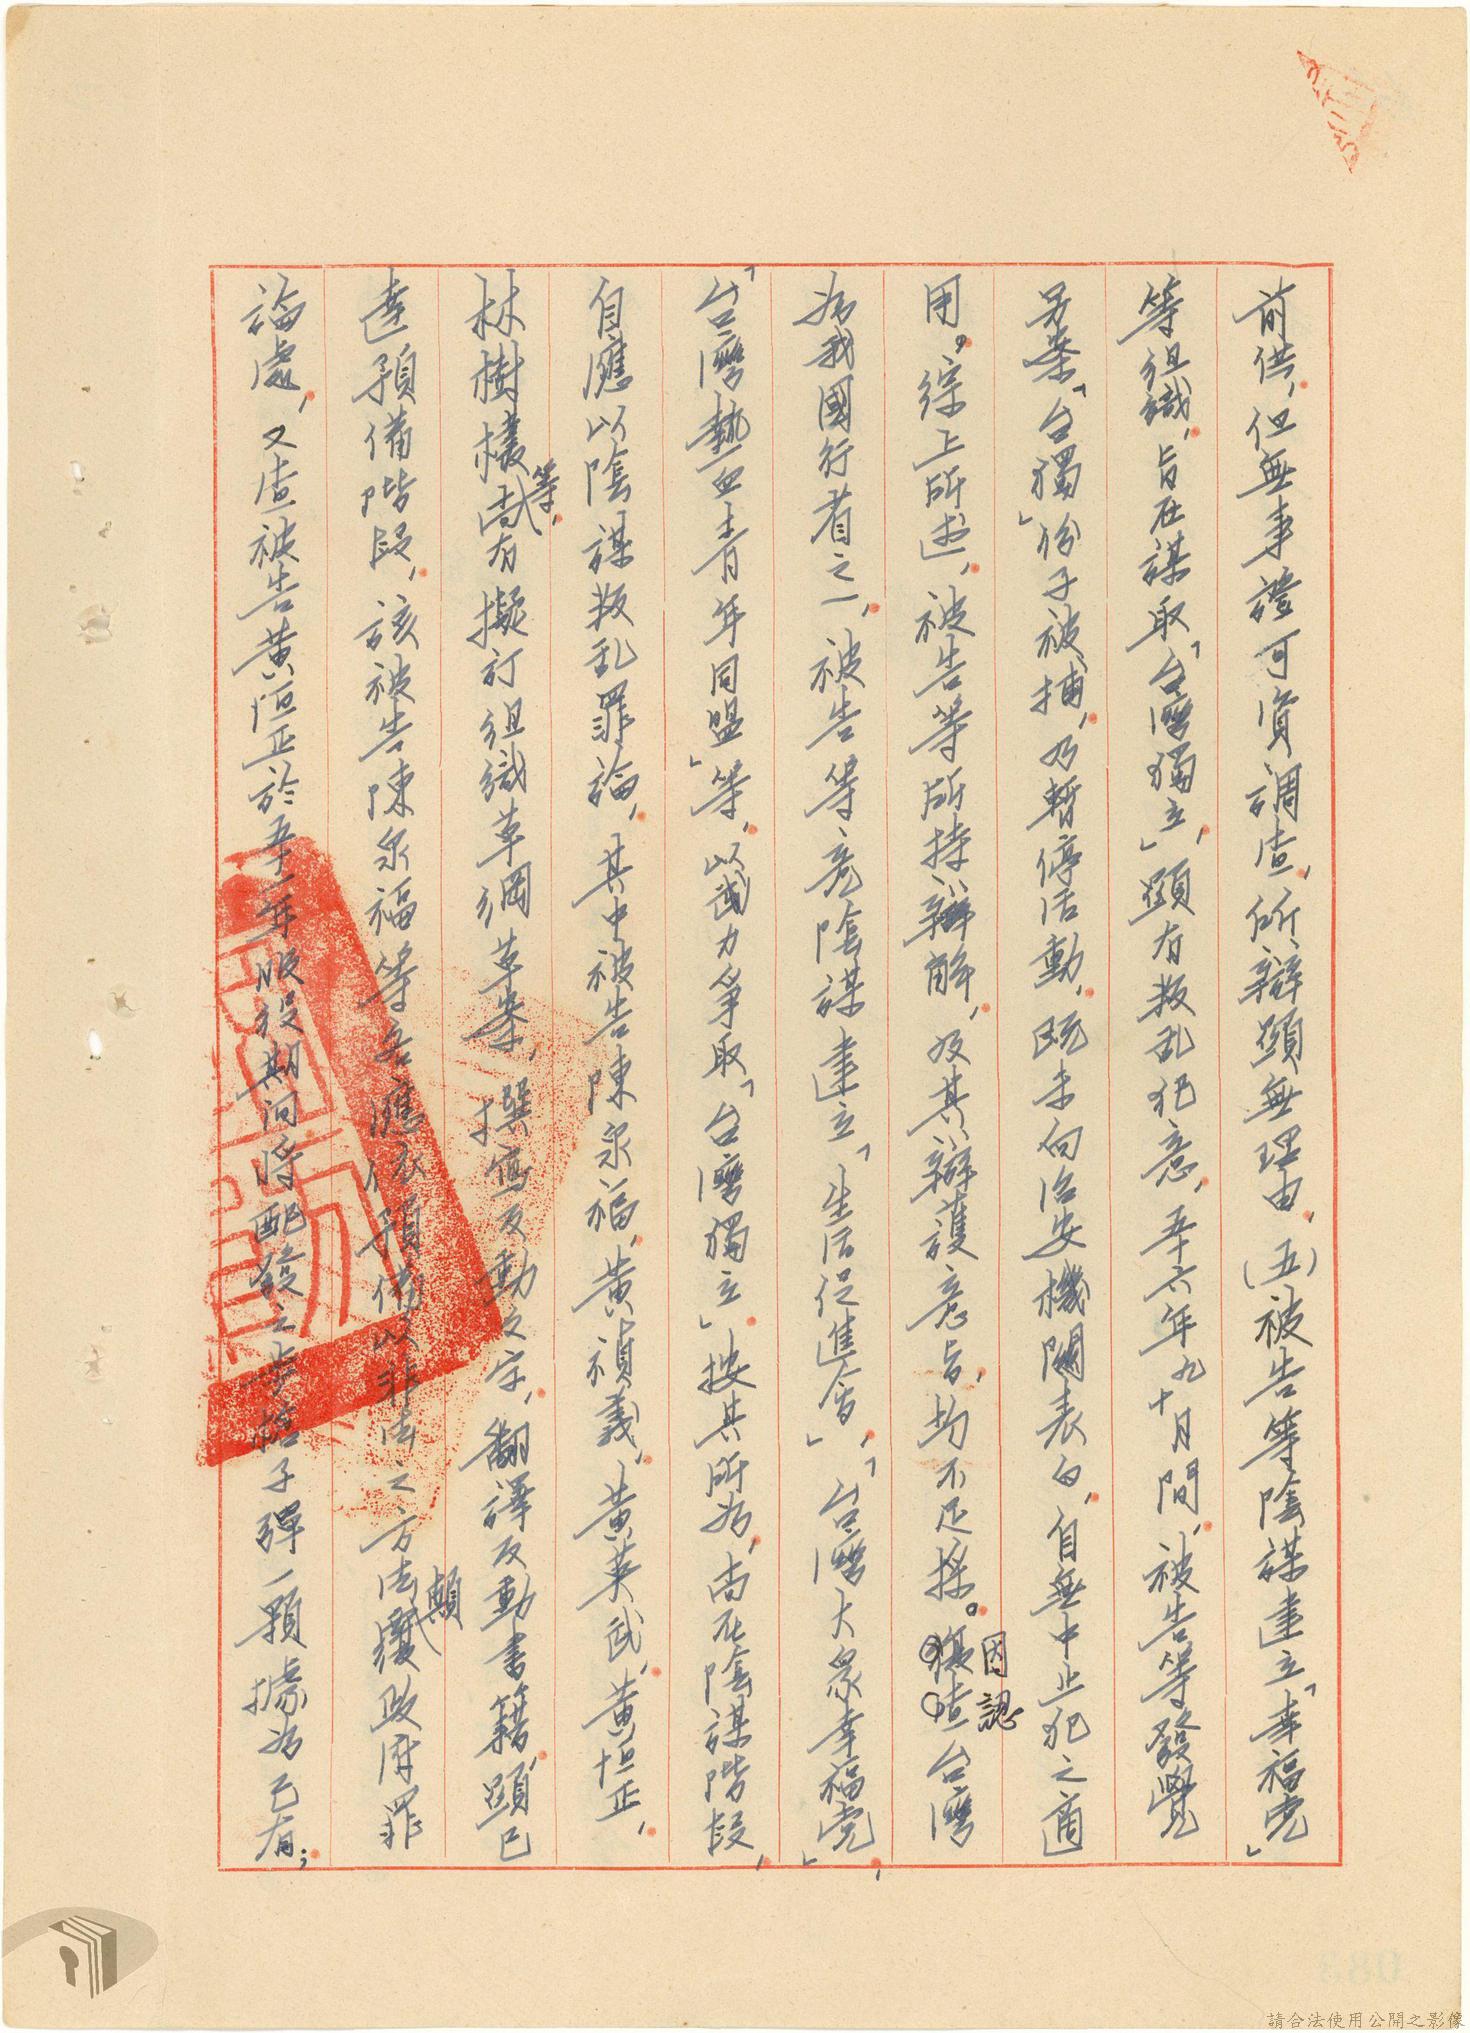 前供，但無事證可資調查，所辯顯無理由，(五)被告等陰謀建立「幸福党」
等組織，旨在謀取「台灣獨立」，顯有叛乱犯意，五十六年九十月間，被告等發覺
另案「台獨」份子被捕，乃暫停活動，既未向治安機關表白，自無中止犯之適
用。綜上所述，被告等所持辯解，及其辯護意旨，均不足採。因認台灣
為我國行省之一，被告等竟陰謀建立「生活促進會」，「台灣大眾幸福党」，
「台灣熱血青年同盟」等，以武力爭取「台灣獨立」按其所為，尚在陰謀階段，
自應以陰謀叛乱罪論，其中被告陳泉福，黃禎義，黃英武，黃恒正，
林樹欉等，尚有擬訂組織草綱草案，撰寫反動文字，翻譯反動書籍，顯已
達預備階段，該被告陳泉福等各應依預備以非法之方法顛覆政府罪
論處，又查被告黃恒正於五十一年服役期间將配發之步槍子彈一顆據為己有；
請合法使用公開之影像